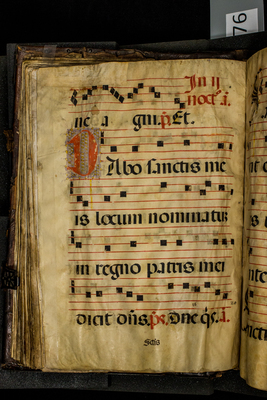 76
In ij
noct. a.
ne a gni. ps. Et.
Dabo sanctis me
is locum nominatum
in regno patris mei
dicit dns. ps. Dne qs. a.